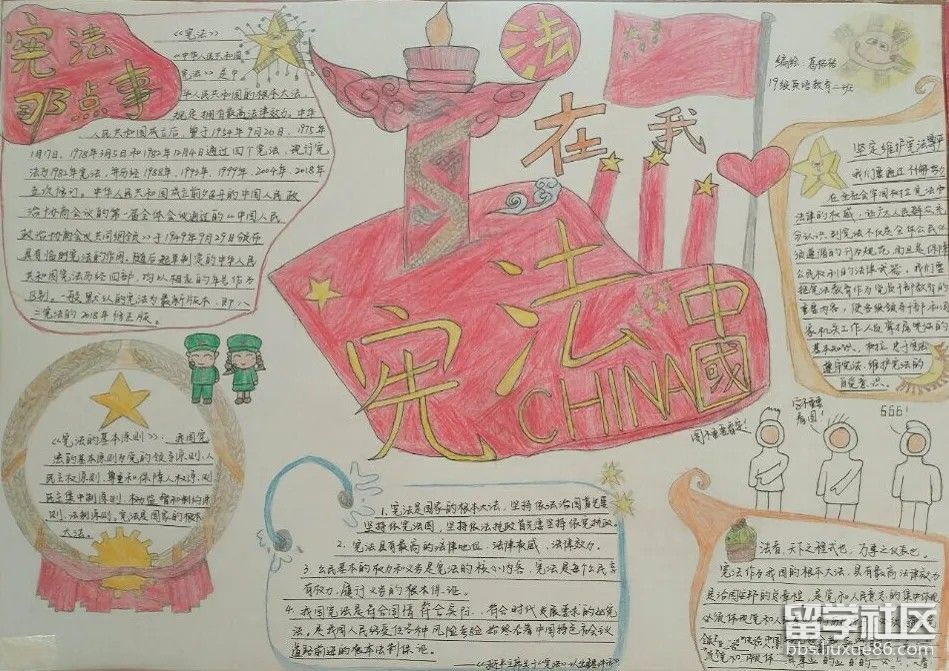 宪法
那点事
《宪法》
《中华人民共和国
宪法》是中
华人民共和国的根本大法，
规定拥有最高法律效力。中华
人民共和国成立后，曾于1954年9月20日、1975年
1月17日、1978年3月5日和1982年12月4日通过四个宪法，现行宪
法为1982年宪法，并历经1988年、1993年、1999年、2004年、2018年
五次修订。中华人民共和国成立前夕召开的中国人民政
治协商会议的第一届全体会议通过的《中国人民
政治协商会议共同纲领》于1949年9月29日颁布
具有临时宪法的作用，随后起草制定的中华人民
共和国宪法历经四部，均以相应的年号作为
区别。一般默认的宪法为最新版本，即八
二宪法的2018年修正版。
法
在我
宪法
CHINA
中國
编绘：葛
19级英语教育二班
坚定维护宪法尊严
我们要通过
在全社会牢固树立宪法和
法律的权威，让广大人民群众充
分认识到宪法不仅是全体公民必
须遵循的行为规范，而且是保障
公民权利的法律武器，我们要
把宪法教育作为党员干部教育的
重要内容，使各级领导干部和国
家机关工作人员掌握宪法的
基本知识，树立忠于宪法、
遵守宪法、维护宪法的
自觉意识。
《宪法的基本原则》：我国宪
法的基本原则为党的领导原则、人
民主权原则、尊重和保障人权原则、
民主集中制原则、权力监督和制约原
则、法制原则。宪法是国家的根本
大法。
1. 宪法是国家的根本大法，坚持依法治国首先要
坚持依宪治国，坚持依法执政首先要坚持依宪执政。
2. 宪法具有最高的法律地位、法律权威、法律效力。
3. 公民基本的权力和义务是宪法的核心内容，宪法是每个公民享
有权力、履行义务的根本保证。
4. 我国宪法是符合国情、符合实际、符合时代发展要求的好宪
法，是我国人民经受住各种风险考验、始终沿着中国特色社会主义
道路前进的根本法制保证。
字不重要
看图！
666！
法者，天下之程式也，万事之仪表也。
宪法作为我国的根本大法，具有最高法律效力
是治国安邦的总章程，是党和人民意志的集中体现
留学社区
bbs.liuxue86.com